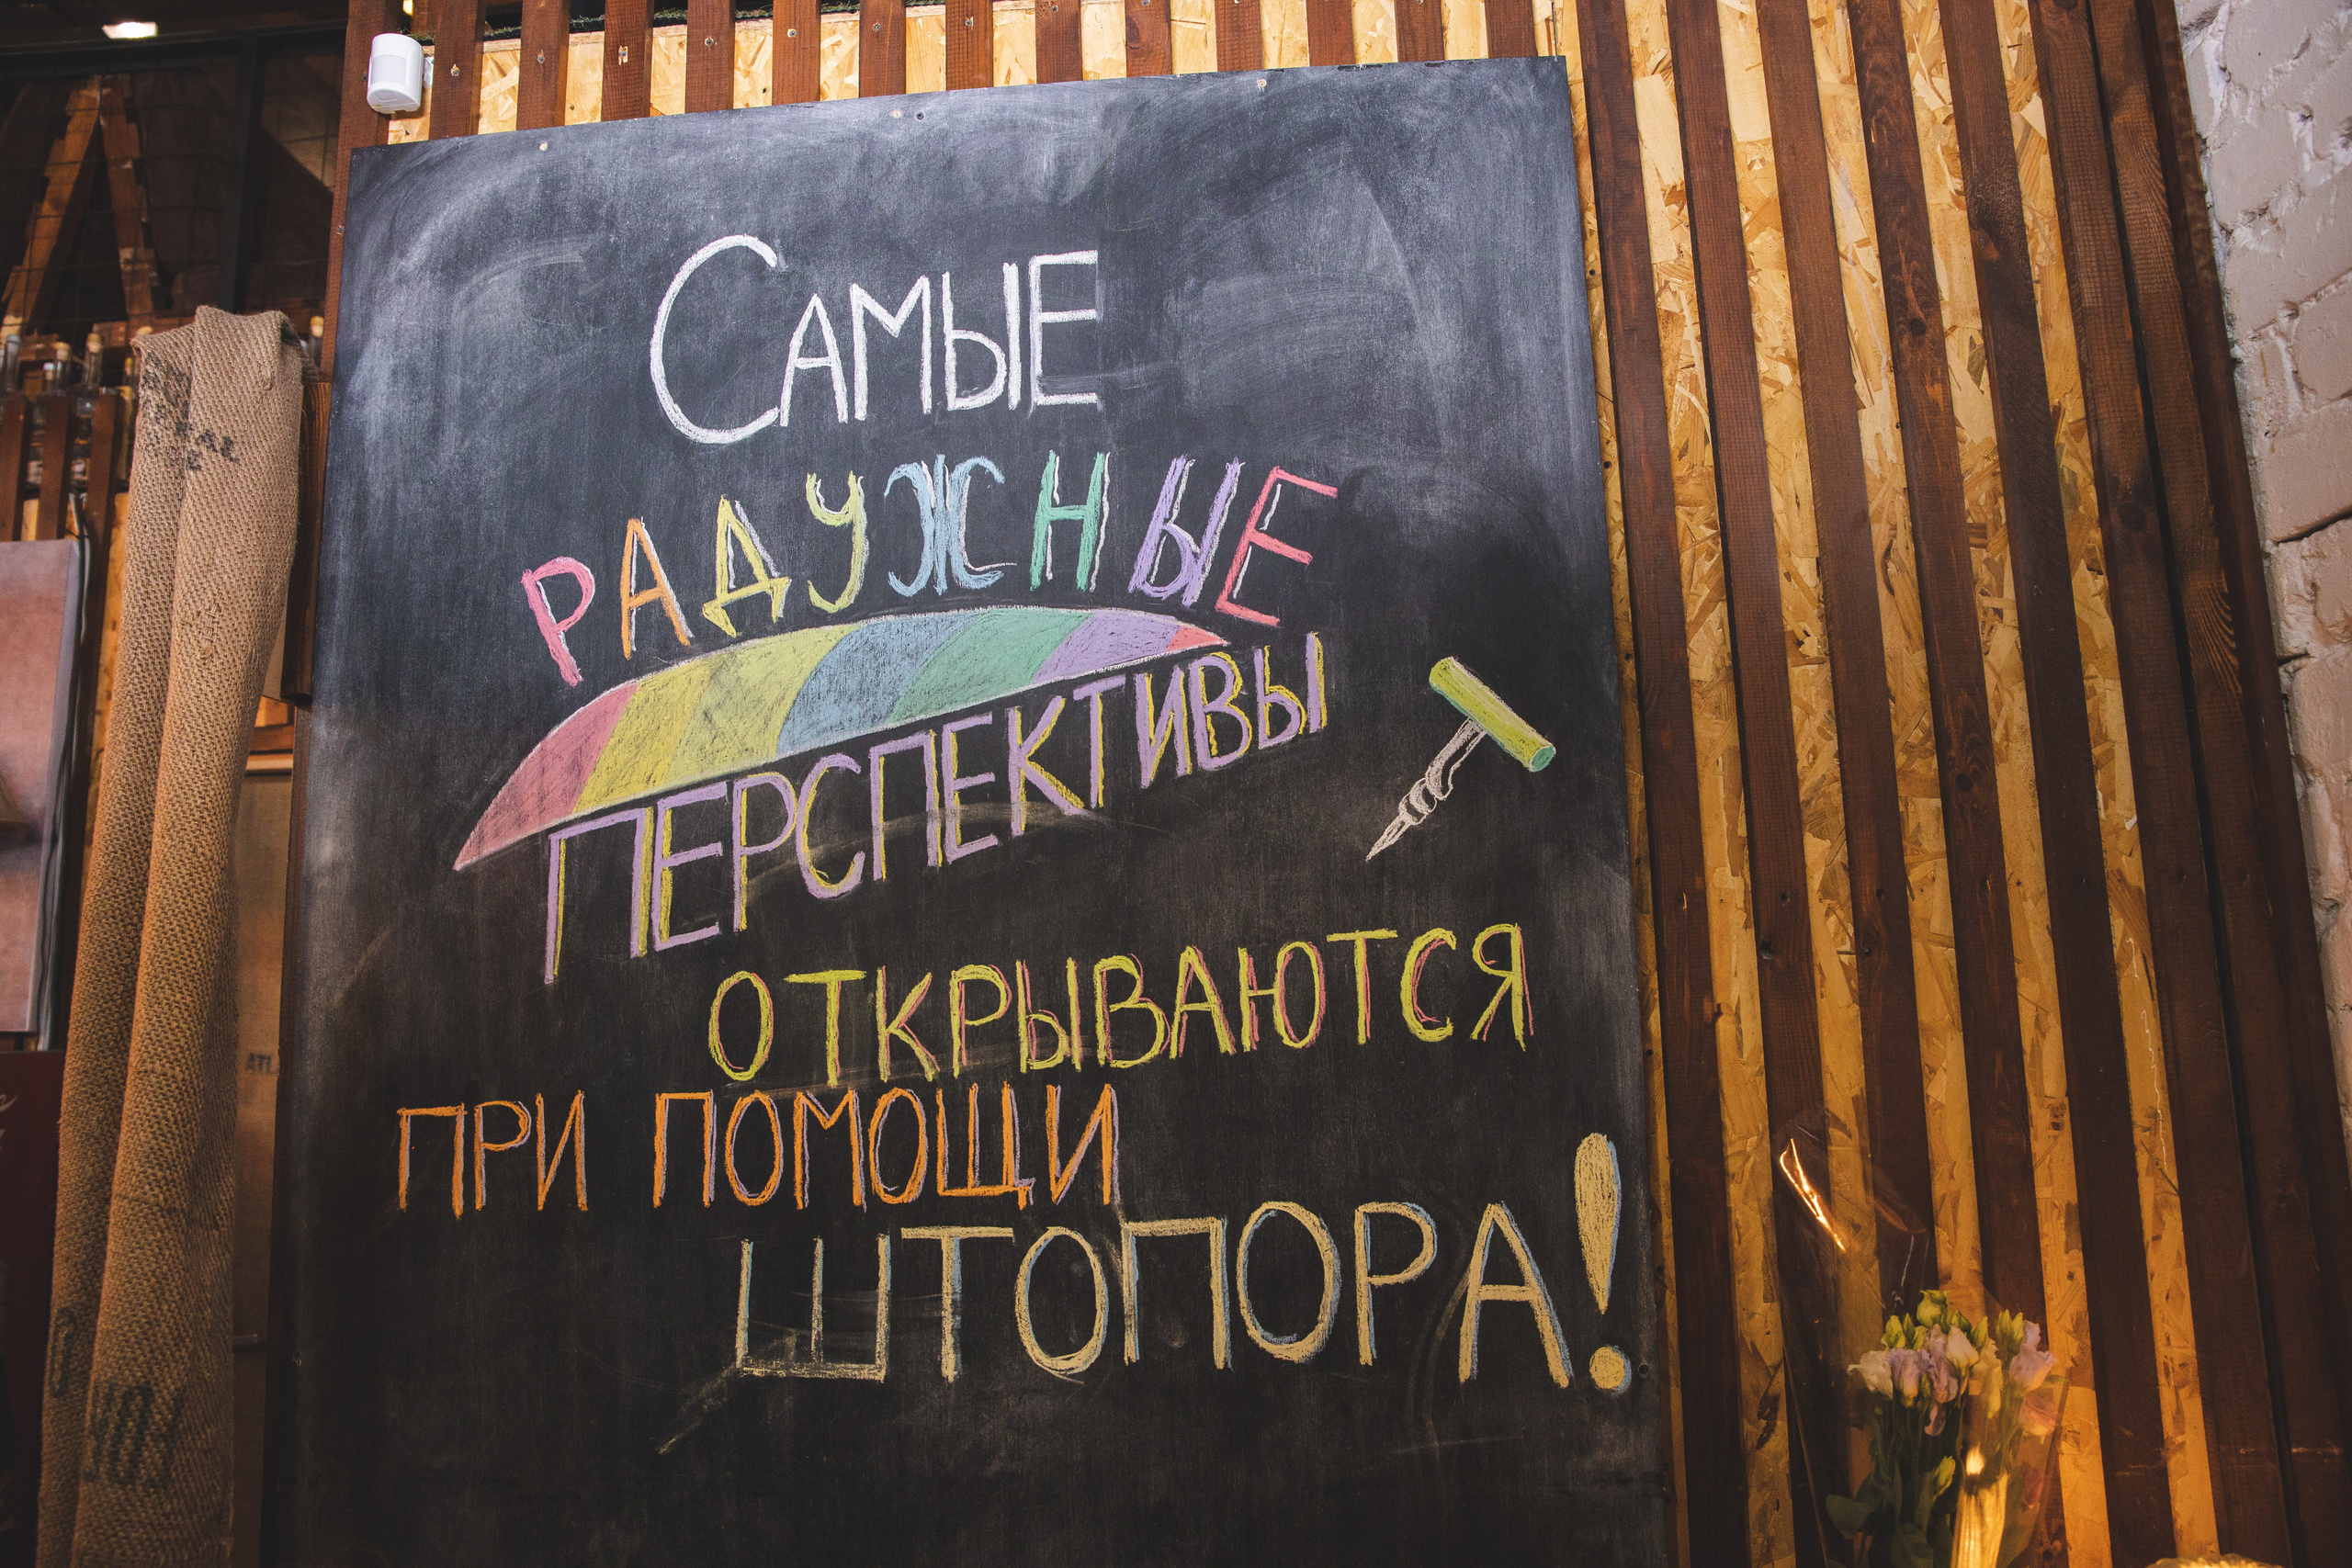 Самые
РАДУЖНЫЕ
ПЕРСПЕКТИВЫ
ОТКРЫВАЮТСЯ
ПРИ ПОМОЩИ
ШТОПОРА!